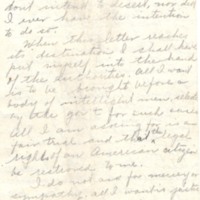 dont intend to desert, nor did
I ever have the intention
to do so.
When this letter reaches
its destination I shall have
put myself into the hands
of the authorities. All I want
is to be brought before a
body of intelligent men,
by the gov't for such cases
All I am asking for is a
fair trial and that the legal
rights of an American citizen
be restored to me.
I do not ask for mercy or
sympathy, all I want is justice